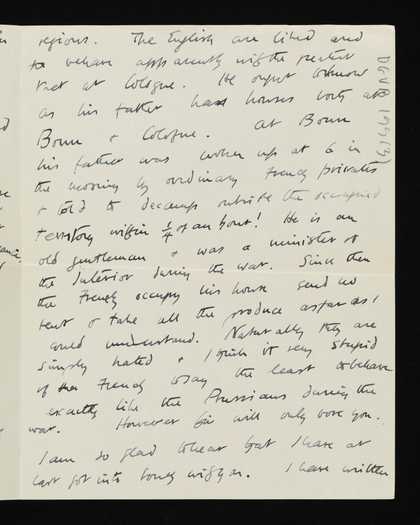 regions. The English are liked and
to behave apparently with the greatest
tact at Cologne. He ought to know
as his father has houses both at
Bonn & Cologne. At Bonn
his father was woken up at 6 in
the morning by ordinary French privates
& told to decamp outside the occupied
territory within ¼ of an hour! He is an
old gentleman & was a minister of
the Interior during the war. Since then
the French occupy his house send no
rent & take all the produce as far as I
could understand. Naturally they are
simply hated & I think it very stupid
of the French to say the least to behave
exactly like the Prussians during the
war. However this will only bore you.
I am so glad to hear that I have at
last got into touch with you. I have written
DGVB 199(3)